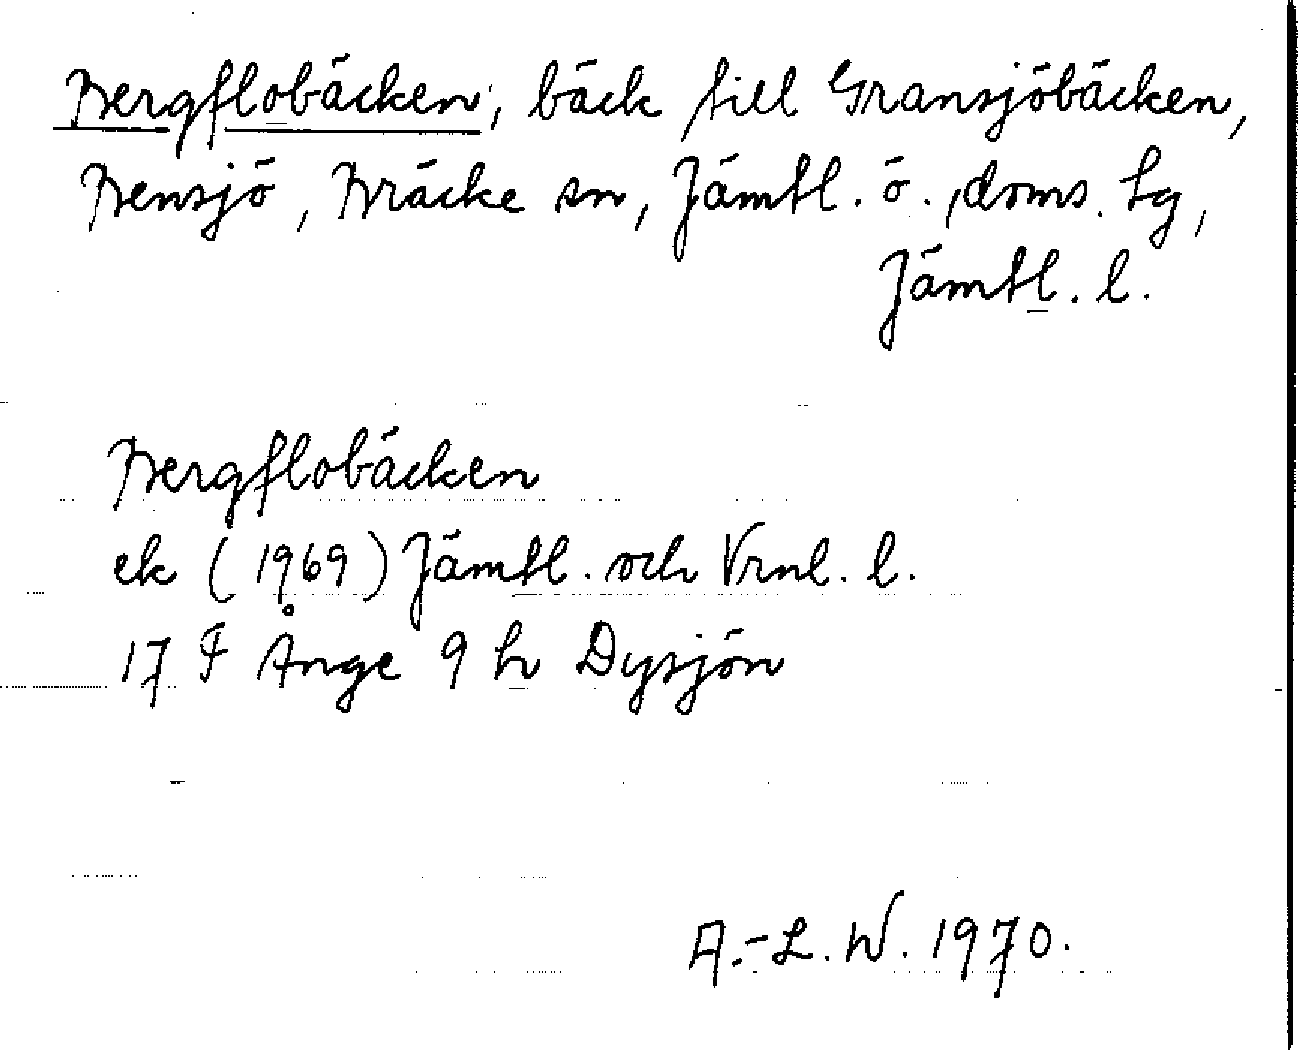 Bergflobäcken, bäck till Gransjöbäcken,
Bensjö, Bräcke sn, Jämtl. ö. doms. tg,
Jämtl. l.
Bergflobäcken
ek (1969) Jämtl. och Vrnl. l.
17 F Ånge 9 h Dysjön
A.-L. W. 1970.